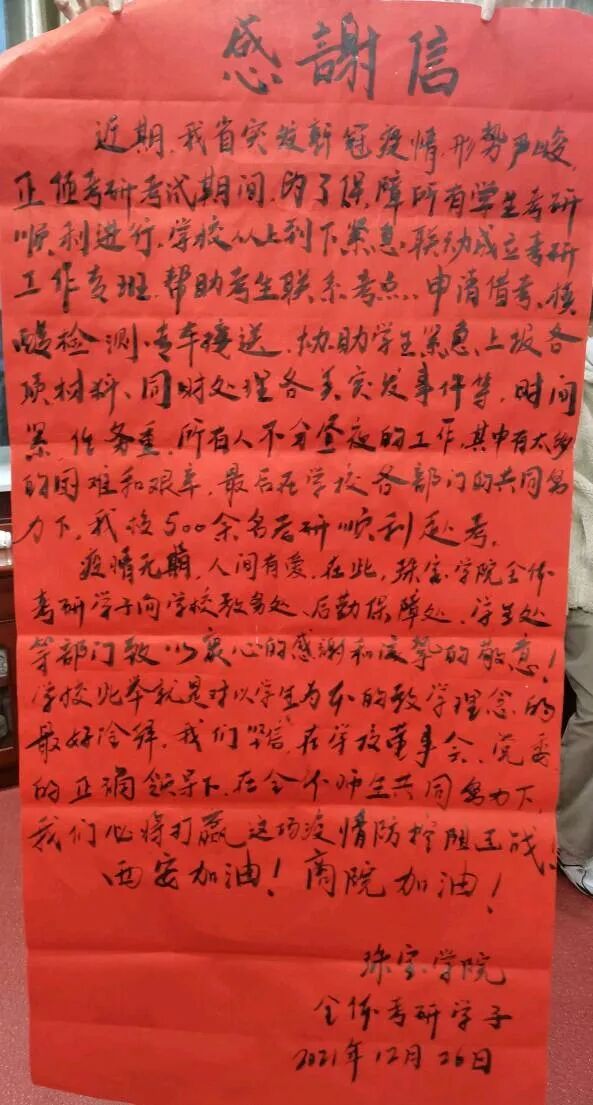 感謝信
近期,我省突发新冠疫情,形势严峻,
正值考研考试期间,为了保障所有学生考研
顺利进行,学校从上到下紧急联动成立考研
工作专班,帮助考生联系考点、申请借考、核
酸检测、专车接送、协助学生紧急上报各
项材料、同时处理各类突发事件等,时间
紧,任务重,所有人不分昼夜的工作,其中有太多
的困难和艰辛,最后在学校各部门的共同努
力下,我校500余名考研顺利赴考。
疫情无期,人间有爱,在此,珠宝学院全体
考研学子向学校教务处、后勤保障处、学生处
等部门致以衷心的感谢和诚挚的敬意!
学校此举就是对以学生为本的教学理念的
最好诠释,我们坚信,在学校董事会、党委
的正确领导下,在全体师生共同努力下,
我们必将打赢这场疫情防控阻击战!
西安加油!商院加油!
珠宝学院
全体考研学子
2021年12月26日